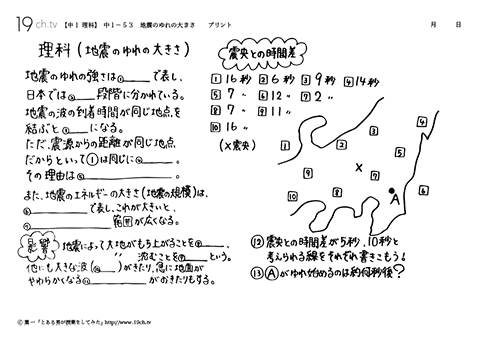 19ch.tv 【中1 理科】 中1-53 地震のゆれの大きさ プリント 月 日
理科(地震のゆれの大きさ)
地震のゆれの強さは①____で表し、
日本では②____段階に分かれている。
地震の波の到着時間が同じ地点を
結ぶと③____になる。
ただ、震源からの距離が同じ地点
だからといって①は同じに④____。
その理由は⑤____。
また、地震のエネルギーの大きさ(地震の規模)は、
⑥____で表し、これが大きいと、
⑦____範囲が広くなる。
影響 地震によって大地がもち上がることを⑧____、
〃 沈むことを⑨____という。
他にも大きな波(⑩____)がきたり、急に地面が
やわらかくなる⑪____がおきたりする。
震央との時間差
1 16秒 2 6秒 3 9秒 4 14秒
5 7〃 6 12〃 7 2〃
8 7〃 9 11〃
10 16〃
(X震央)
1
2
3
4
5
6
7
8
9
10
X
A
⑫震央との時間差が5秒、10秒と
考えられる線をそれぞれ書きこもう!
⑬Ⓐがゆれ始めるのは約何秒後?
©葉一「とある男が授業をしてみた」http://www.19ch.tv